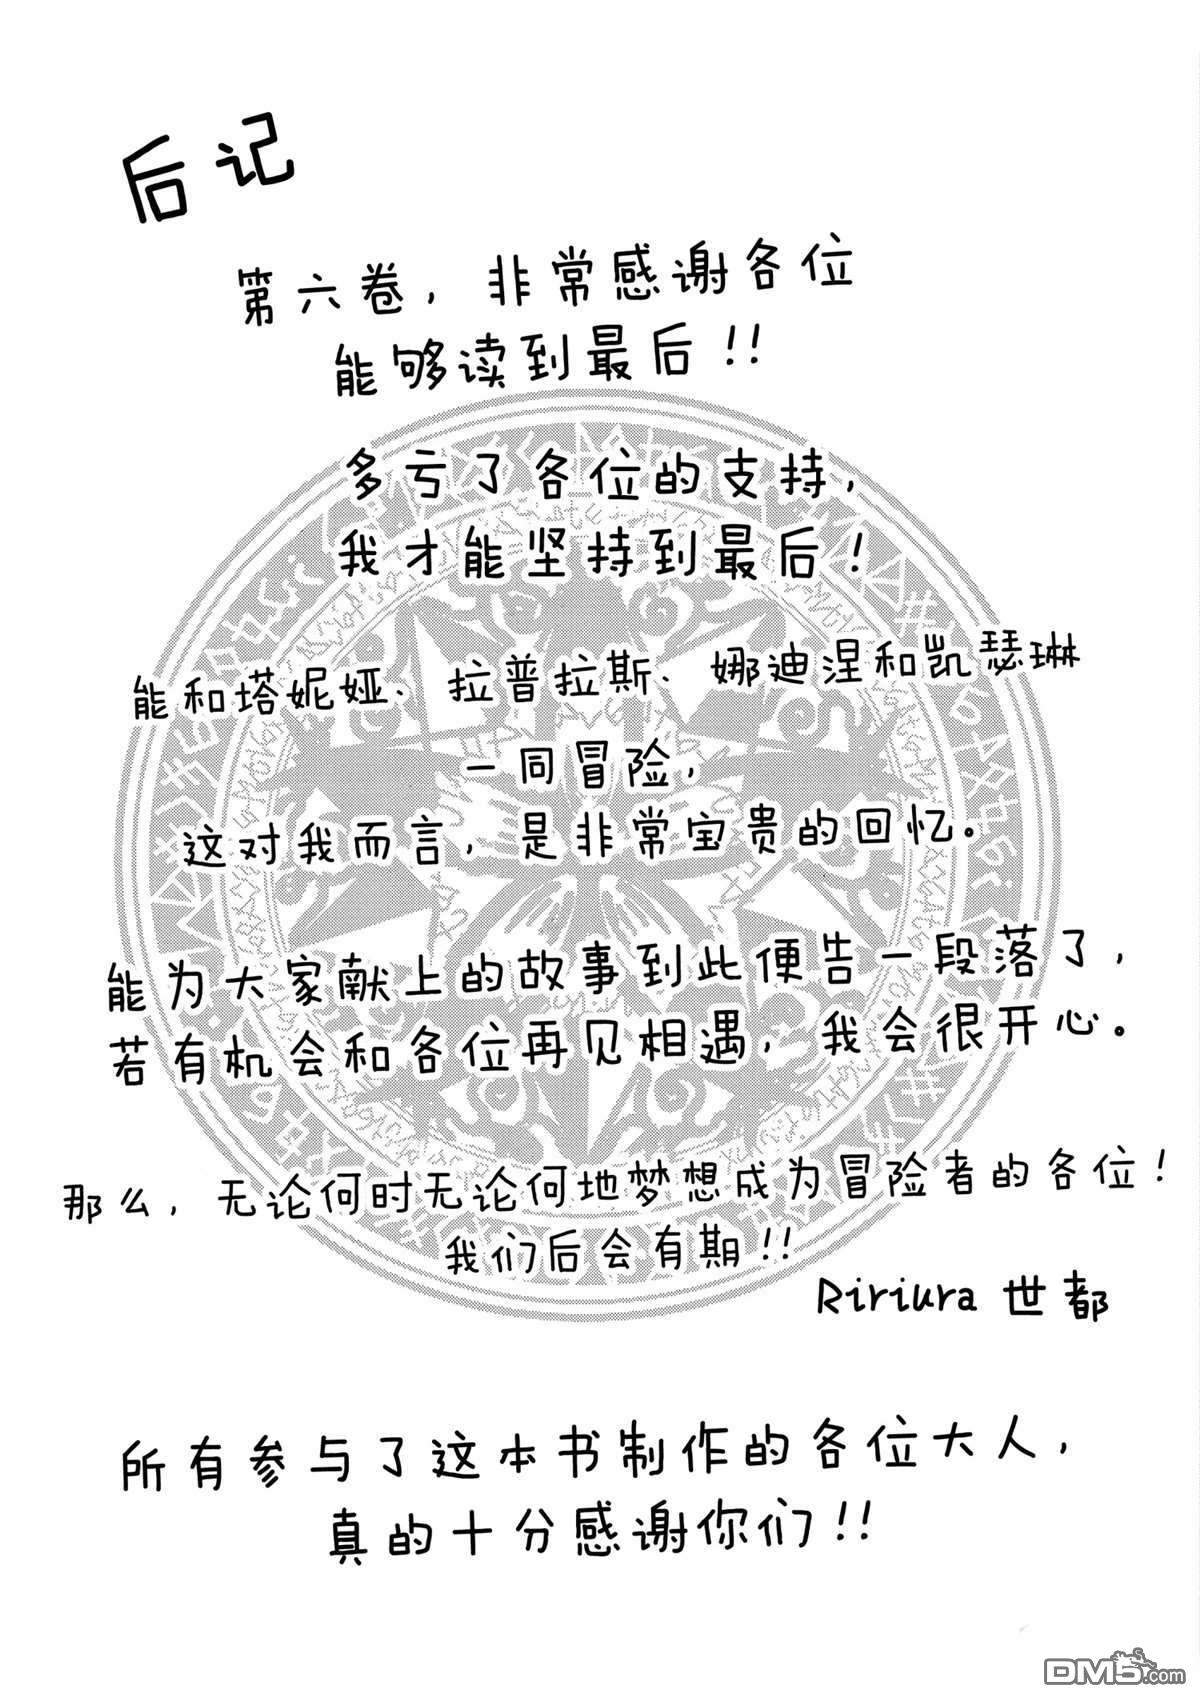 后记
第六卷，非常感谢各位
能够读到最后!!
多亏了各位的支持，
我才能坚持到最后!
能和塔妮娅、拉普拉斯、娜迪涅和凯瑟琳
一同冒险，
这对我而言，是非常宝贵的回忆。
能为大家献上的故事到此便告一段落了，
若有机会和各位再见相遇，我会很开心。
那么，无论何时无论何地梦想成为冒险者的各位!
我们后会有期!!
Ririura 世都
所有参与了这本书制作的各位大人，
真的十分感谢你们!!
DM5.com